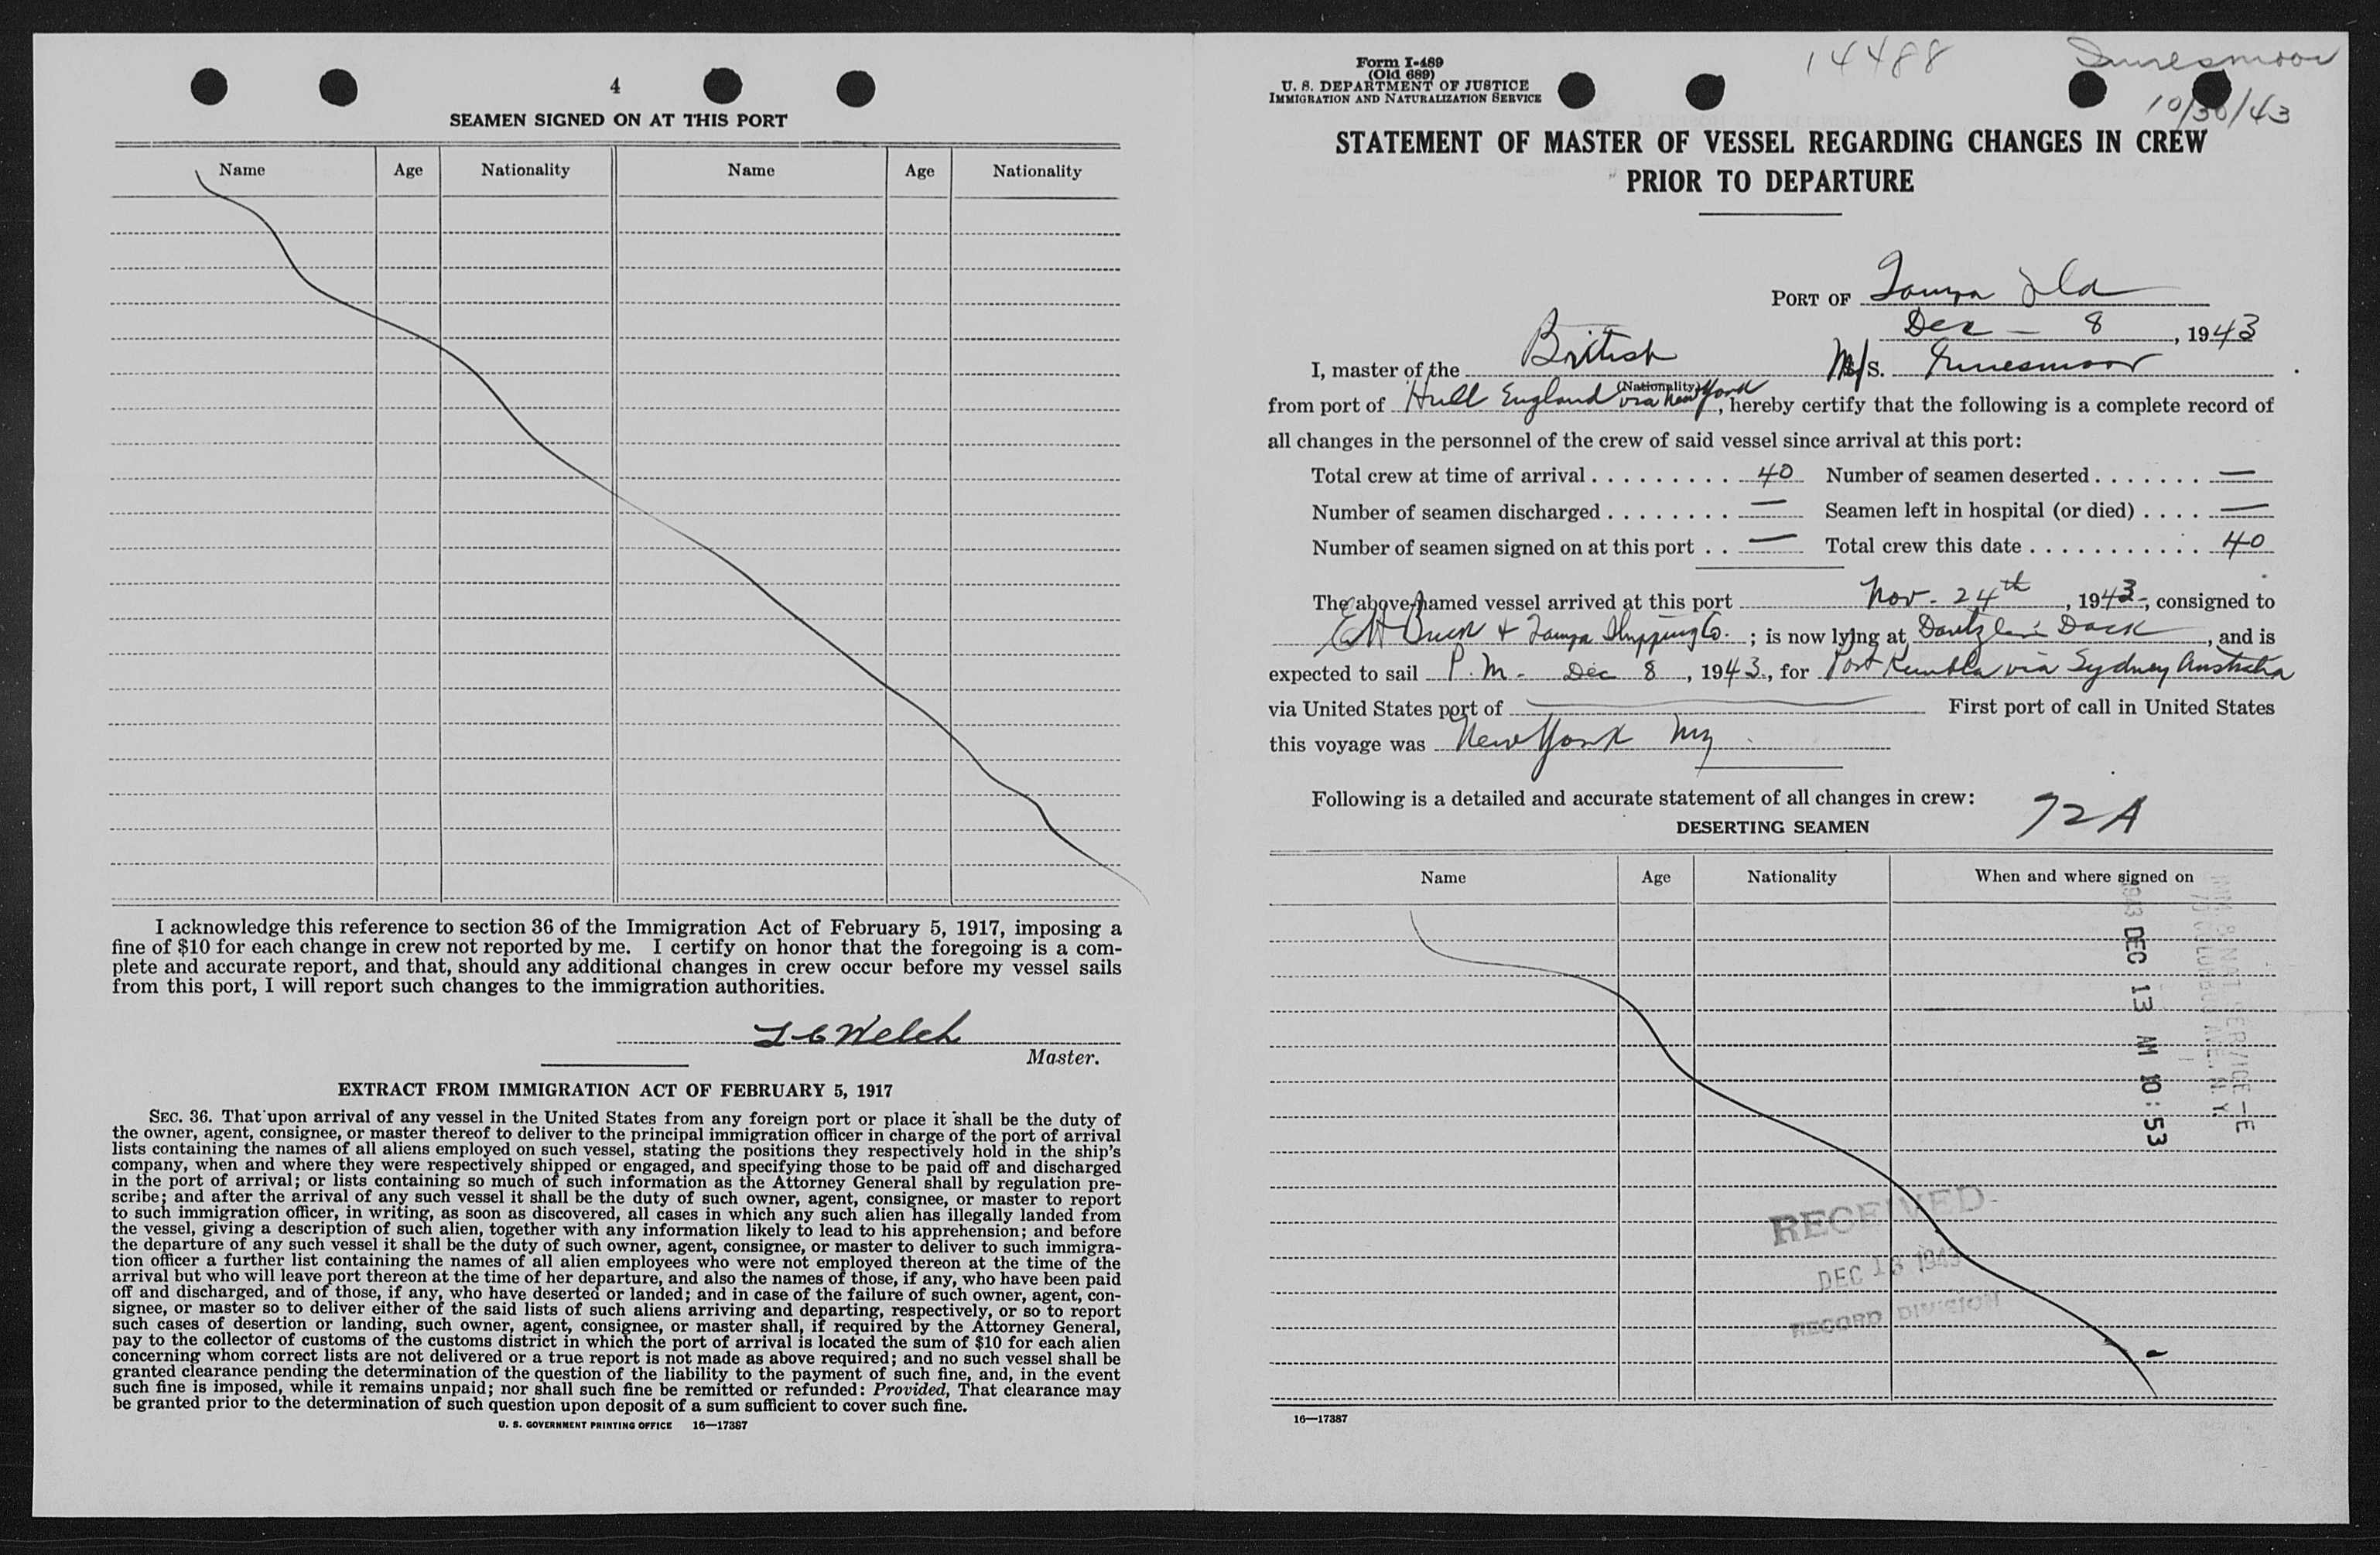 4
SEAMEN SIGNED ON AT THIS PORT
Name Age Nationality Name Age Nationality
I acknowledge this reference to section 36 of the Immigration Act of February 5, 1917, imposing a
fine of $10 for each change in crew not reported by me. I certify on honor that the foregoing is a com-
plete and accurate report, and that, should any additional changes in crew occur before my vessel sails
from this port, I will report such changes to the immigration authorities.
Welch
Master.
EXTRACT FROM IMMIGRATION ACT OF FEBRUARY 5, 1917
SEC. 36. That upon arrival of any vessel in the United States from any foreign port or place it shall be the duty of
the owner, agent, consignee, or master thereof to deliver to the principal immigration officer in charge of the port of arrival
lists containing the names of all aliens employed on such vessel, stating the positions they respectively hold in the ship's
company, when and where they were respectively shipped or engaged, and specifying those to be paid off and discharged
in the port of arrival; or lists containing so much of such information as the Attorney General shall by regulation pre-
scribe; and after the arrival of any such vessel it shall be the duty of such owner, agent, consignee, or master to report
to such immigration officer, in writing, as soon as discovered, all cases in which any such alien has illegally landed from
the vessel, giving a description of such alien, together with any information likely to lead to his apprehension; and before
the departure of any such vessel it shall be the duty of such owner, agent, consignee, or master to deliver to such immigra-
tion officer a further list containing the names of all alien employees who were not employed thereon at the time of the
arrival but who will leave port thereon at the time of her departure, and also the names of those, if any, who have been paid
off and discharged, and of those, if any, who have deserted or landed; and in case of the failure of such owner, agent, con-
signee, or master so to deliver either of the said lists of such aliens arriving and departing, respectively, or so to report
such cases of desertion or landing, such owner, agent, consignee, or master shall, if required by the Attorney General,
pay to the collector of customs of the customs district in which the port of arrival is located the sum of $10 for each alien
concerning whom correct lists are not delivered or a true report is not made as above required; and no such vessel shall be
granted clearance pending the determination of the question of the liability to the payment of such fine, and, in the event
such fine is imposed, while it remains unpaid; nor shall such fine be remitted or refunded: Provided, That clearance may
be granted prior to the determination of such question upon deposit of a sum sufficient to cover such fine.
U. S. GOVERNMENT PRINTING OFFICE 16—17387
Form I-489
(Old 689)
U. S. DEPARTMENT OF JUSTICE
IMMIGRATION AND NATURALIZATION SERVICE
14488
Innesmoor
10/30/43
STATEMENT OF MASTER OF VESSEL REGARDING CHANGES IN CREW
PRIOR TO DEPARTURE
PORT OF Tampa Fla
Dec - 8, 1943
I, master of the British M/s. Innesmoor
(Nationality)
from port of Hull England via New York, hereby certify that the following is a complete record of
all changes in the personnel of the crew of said vessel since arrival at this port:
Total crew at time of arrival 40 Number of seamen deserted —
Number of seamen discharged — Seamen left in hospital (or died) —
Number of seamen signed on at this port — Total crew this date 40
The above-named vessel arrived at this port Nov. 24th, 1943, consigned to
& Tampa Shipping Co.; is now lying at Dock, and is
expected to sail P.M. Dec 8, 1943, for Port Kembla via Sydney Australia
via United States port of — First port of call in United States
this voyage was New York NY
Following is a detailed and accurate statement of all changes in crew:
72A
DESERTING SEAMEN
Name Age Nationality When and where signed on
1943 DEC 13 AM 10:53
RECEIVED
DEC 13 1943
RECORD DIVISION
16—17387